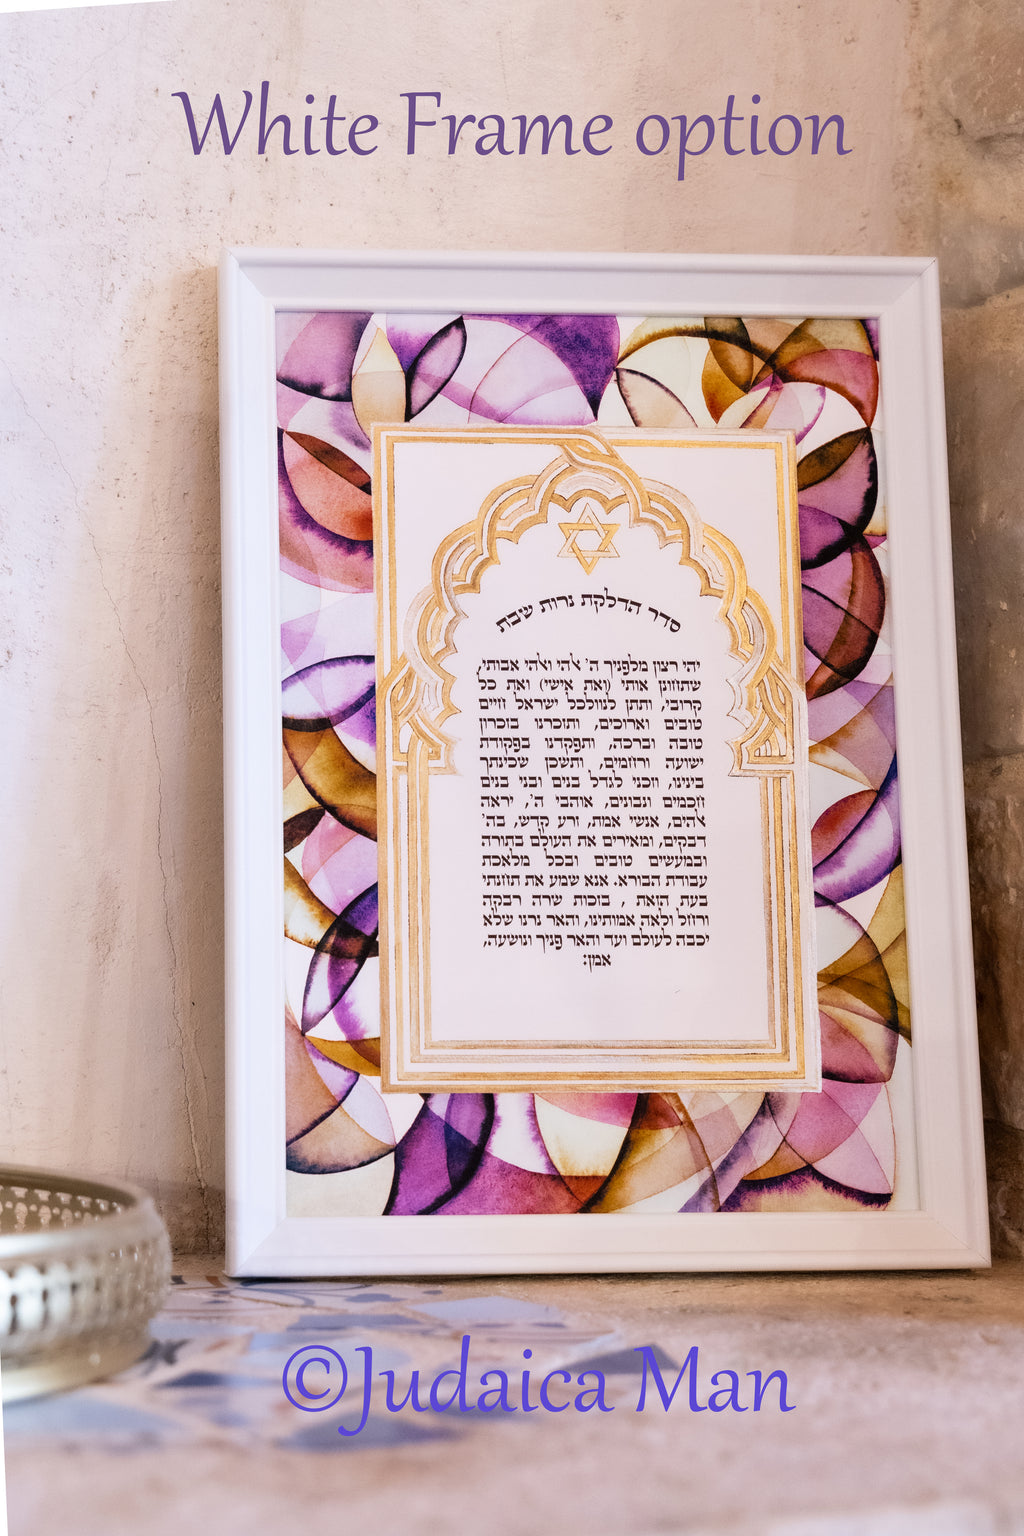 White Frame option
סדר הדלקת נרות שבת
יהי רצון מלפניך ה' אלהי ואלהי אבותי,
שתחונן אותי (ואת אישי) ואת כל
קרובי, ותתן לנוולכל ישראל חיים
טובים וארוכים, ותזכרנו בזכרון
טובה וברכה, ותפקדנו בפקודת
ישועה ורחמים, ותשכן שכינתך
בינינו, וזכני לגדל בנים ובני בנים
חכמים ונבונים, אוהבי ה', יראה
אלהים, אנשי אמת, זרע קדש, בה'
דבקים, ומאירים את העולם בתורה
ובמעשים טובים ובכל מלאכת
עבודת הבורא. אנא שמע את תחנתי
בעת הזאת , בזכות שרה רבקה
ורחל ולאה אמותינו, והאר נרנו שלא
יכבה לעולם ועד והאר פניך ונושעה,
אמן:
©Judaica Man